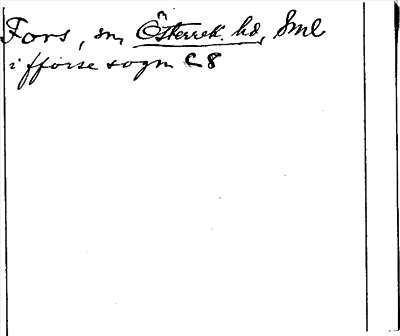 Fors, sn, Österrek. hd, Sml
i fforse sogn C 8